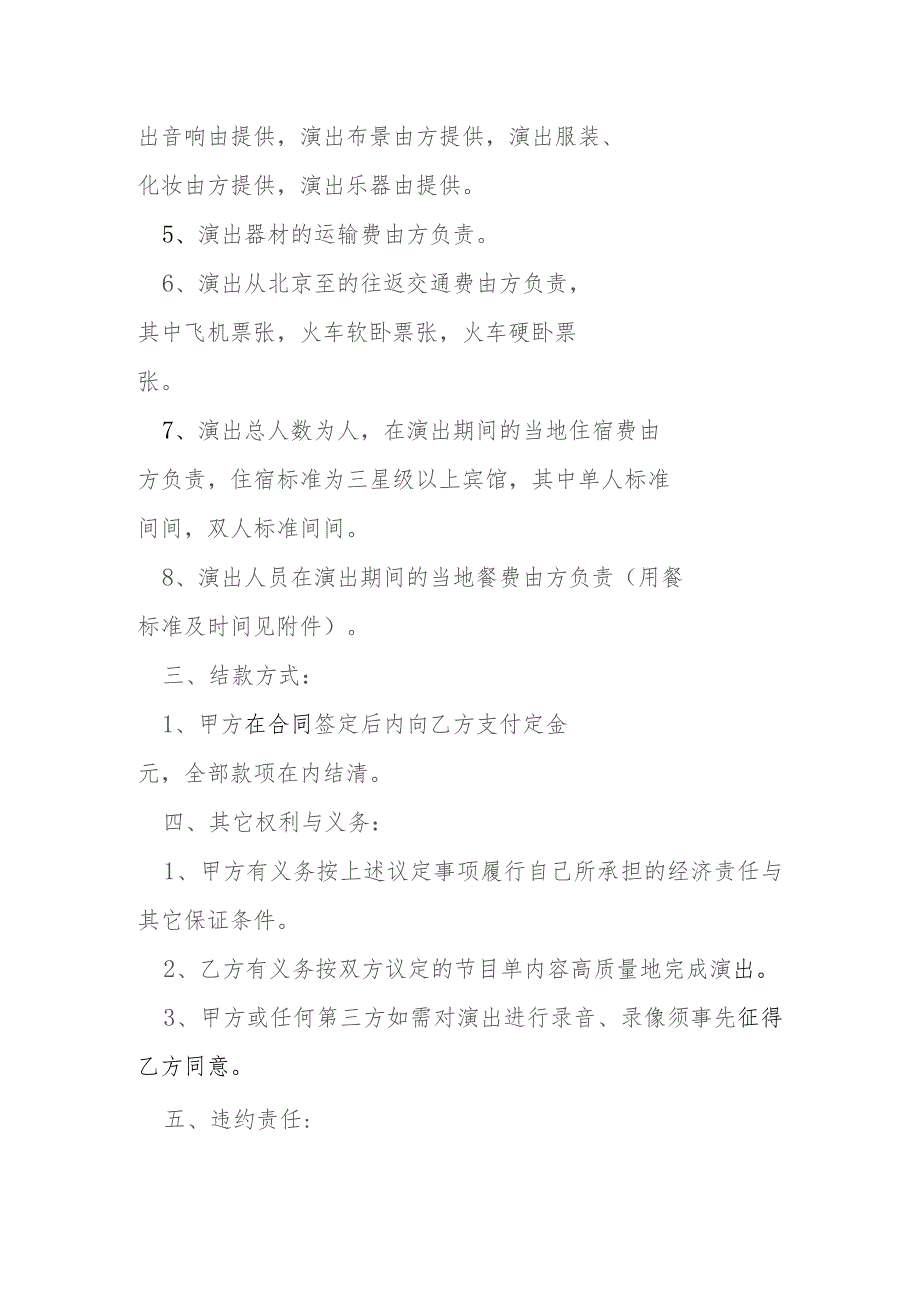 出音响由提供，演出布景由方提供，演出服装、
化妆由方提供，演出乐器由提供。
5、演出器材的运输费由方负责。
6、演出从北京至的往返交通费由方负责，
其中飞机票张，火车软卧票张，火车硬卧票
张。
7、演出总人数为人，在演出期间的当地住宿费由
方负责，住宿标准为三星级以上宾馆，其中单人标准
间间，双人标准间间。
8、演出人员在演出期间的当地餐费由方负责（用餐
标准及时间见附件）。
三、结款方式：
1、甲方在合同签定后内向乙方支付定金
元，全部款项在内结清。
四、其它权利与义务：
1、甲方有义务按上述议定事项履行自己所承担的经济责任与
其它保证条件。
2、乙方有义务按双方议定的节目单内容高质量地完成演出。
3、甲方或任何第三方如需对演出进行录音、录像须事先征得
乙方同意。
五、违约责任: